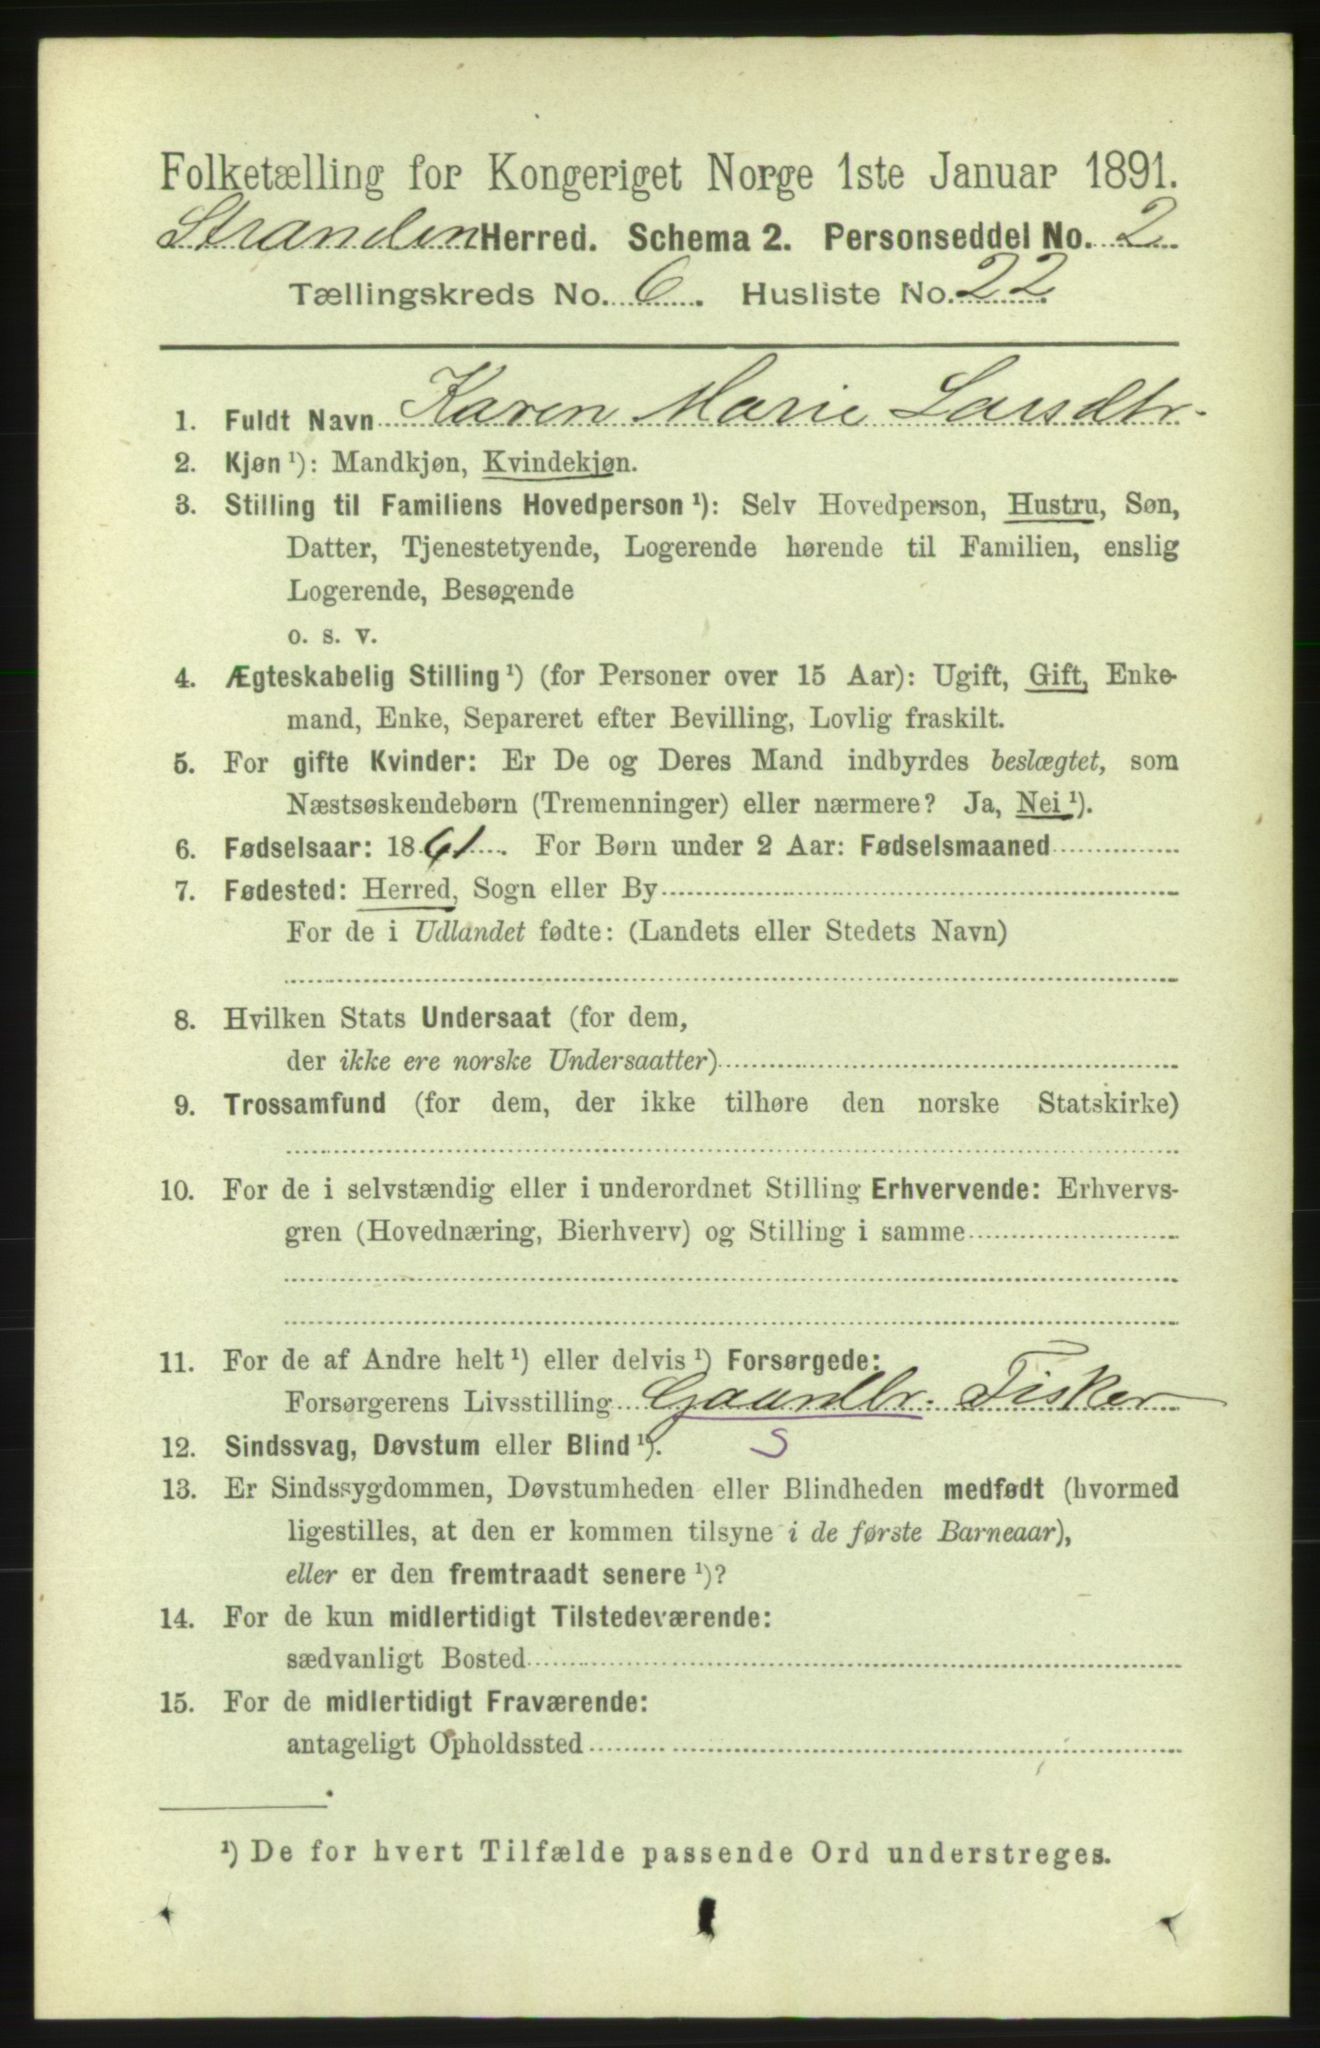 Folketælling for Kongeriget Norge 1ste Januar 1891.
Stranden Herred. Schema 2. Personseddel No. 2
Tællingskreds No. 6. Husliste No. 22.
1. Fuldt Navn Karen Marie Larsdtr.
2. Kjøn ¹): Mandkjøn, Kvindekjøn.
3. Stilling til Familiens Hovedperson ¹): Selv Hovedperson, Hustru, Søn,
Datter, Tjenestetyende, Logerende hørende til Familien, enslig
Logerende, Besøgende
o. s. v.
4. Ægteskabelig Stilling ¹) (for Personer over 15 Aar): Ugift, Gift, Enke-
mand, Enke, Separeret efter Bevilling, Lovlig fraskilt.
5. For gifte Kvinder: Er De og Deres Mand indbyrdes beslægtet, som
Næstsøskendebørn (Tremenninger) eller nærmere? Ja, Nei ¹).
6. Fødselsaar: 1861. For Børn under 2 Aar: Fødselsmaaned
7. Fødested: Herred, Sogn eller By
For de i Udlandet fødte: (Landets eller Stedets Navn)
8. Hvilken Stats Undersaat (for dem,
der ikke ere norske Undersaatter)
9. Trossamfund (for dem, der ikke tilhøre den norske Statskirke)
10. For de i selvstændig eller i underordnet Stilling Erhvervende: Erhvervs-
gren (Hovednæring, Bierhverv) og Stilling i samme
11. For de af Andre helt ¹) eller delvis ¹) Forsørgede:
Forsørgerens Livsstilling Gaardbr. Fisker
12. Sindssvag, Døvstum eller Blind ¹). S
13. Er Sindssygdommen, Døvstumheden eller Blindheden medfødt (hvormed
ligestilles, at den er kommen tilsyne i de første Barneaar),
eller er den fremtraadt senere ¹)?
14. For de kun midlertidigt Tilstedeværende:
sædvanligt Bosted
15. For de midlertidigt Fraværende:
antageligt Opholdssted
¹) De for hvert Tilfælde passende Ord understreges.